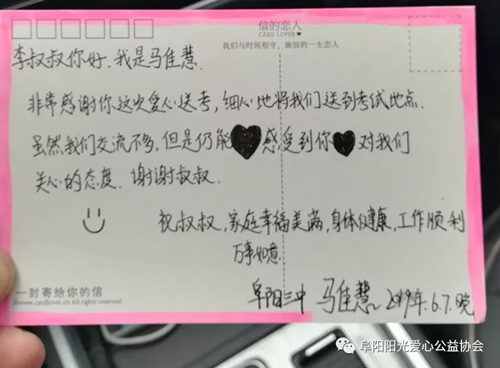 信的恋人
CARD LOVER
我们与时间相守，做信的一生恋人
李叔叔你好，我是马佳慧.
非常感谢你这次爱心送考，细心地将我们送到考试地点.
虽然我们交流不多，但是仍能感受到你对我们
关心的态度. 谢谢叔叔.
祝叔叔，家庭幸福美满，身体健康，工作顺利
万事如意.
阜阳三中 马佳慧 2019年.6.7.晚
一封寄给你的信
©www.cardlover.cn All rights reserved
阜阳阳光爱心公益协会